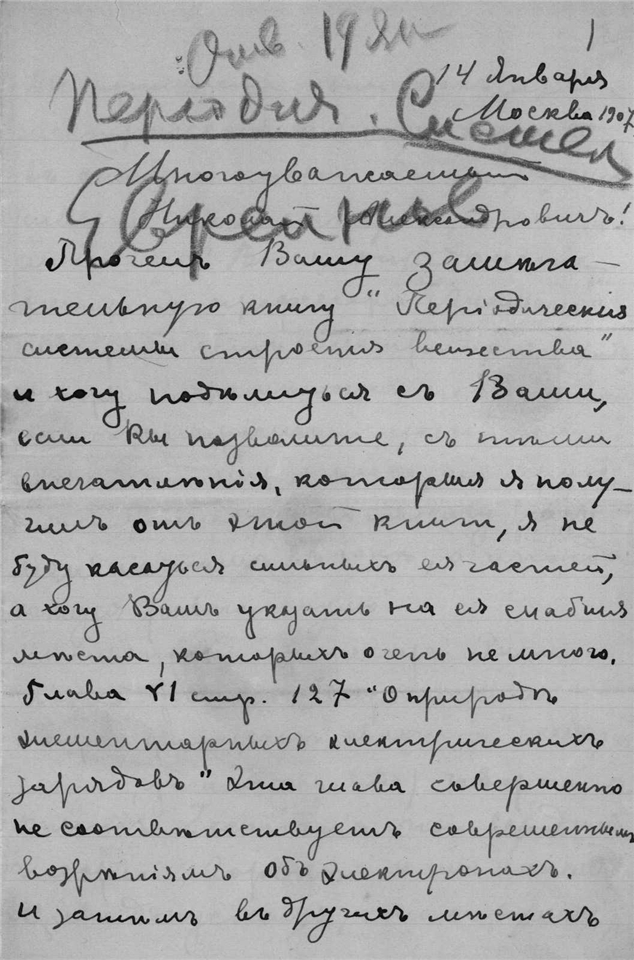 Отв. 19 Ян
1
14 Января
Москва 1907
Періодич. Система
Многоуважаемый
Николай Александровичъ!
Прочелъ Вашу замѣча-
тельную книгу "Періодическія
системы строенія вещества"
и хочу подѣлиться съ Вами,
если Вы позволите, съ тѣми
впечатлѣнія, которыя я полу-
чилъ отъ этой книги, я не
буду касаться сильныхъ ея частей,
а хочу Вамъ указать на ея слабыя
мѣста, которыхъ очень не много.
Глава VI стр. 127 "О природѣ
элементарныхъ электрическихъ
зарядовъ" Эта глава совершенно
не соотвѣтствуетъ современнымъ
воззрѣніямъ объ электронахъ.
и затѣмъ въ другихъ мѣстахъ